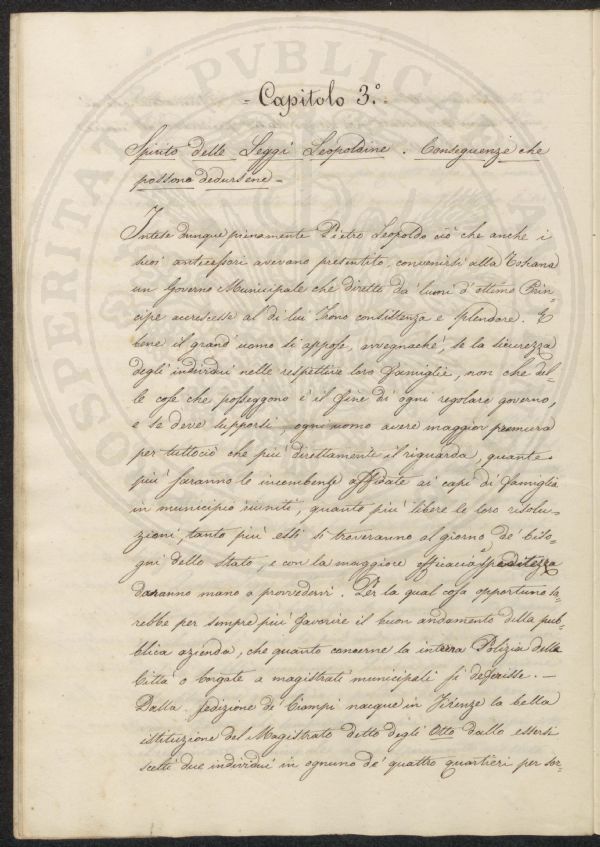 - Capitolo 3.o -
Spirito delle Leggi Leopoldine. Conseguenze che
possono dedursene -
Intese dunque pienamente Pietro Leopoldo ciò che anche i
suoi antecessori avevano presentito, convenirsi alla Toskana
un Governo Municipale che diretto da' lumi d' ottimo Prin-
cipe accrescesse al di lui Trono consistenza e splendore. E
bene il grand' uomo si appose, avvegnachè, se la sicurezza
degli individui nelle respettive loro famiglie, non che del-
le cose che posseggono è il fine di ogni regolare governo,
e se deve supporsi, ogni uomo avere maggior premura
per tuttociò che più direttamente il riguarda, quante
più saranno le incombenze affidate ai capi di famiglia
in municipio riuniti, quanto più libere le loro risolu-
zioni, tanto più essi si troveranno al giorno de' biso-
gni dello Stato, e con la maggiore efficacia e speditezza
daranno mano a provvedervi. Per la qual cosa opportuno sa-
rebbe per sempre più favorire il buon andamento della pub-
blica azienda, che quanto concerne la interna Polizia delle
Città o borgate a magistrati municipali si deferisse. -
Dalla sedizione di Ciompi nacque in Firenze la bella
istituzione del Magistrato detto degli Otto dallo essersi
scelti due individui in ognuno de' quattro quartieri per sor-
PROSPERITATI PVBLICAE